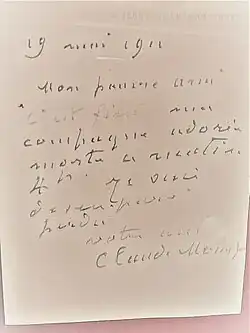 19 mai 1911
Mon pauvre ami
C'est fini ma
compagne adorée
morte ce matin
4 h. Je suis
désemparé
perdu
votre ami
Claude Monet